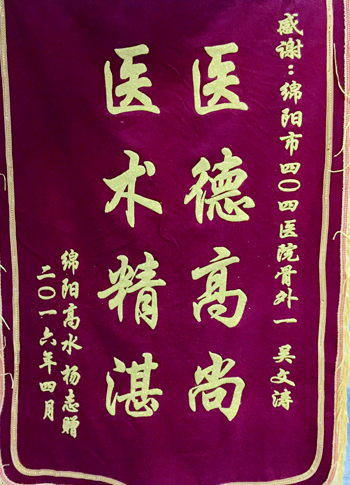 感谢：绵阳市四〇四医院骨外一 吴文涛
医德高尚
医术精湛
绵阳高水杨志赠
二〇一六年四月